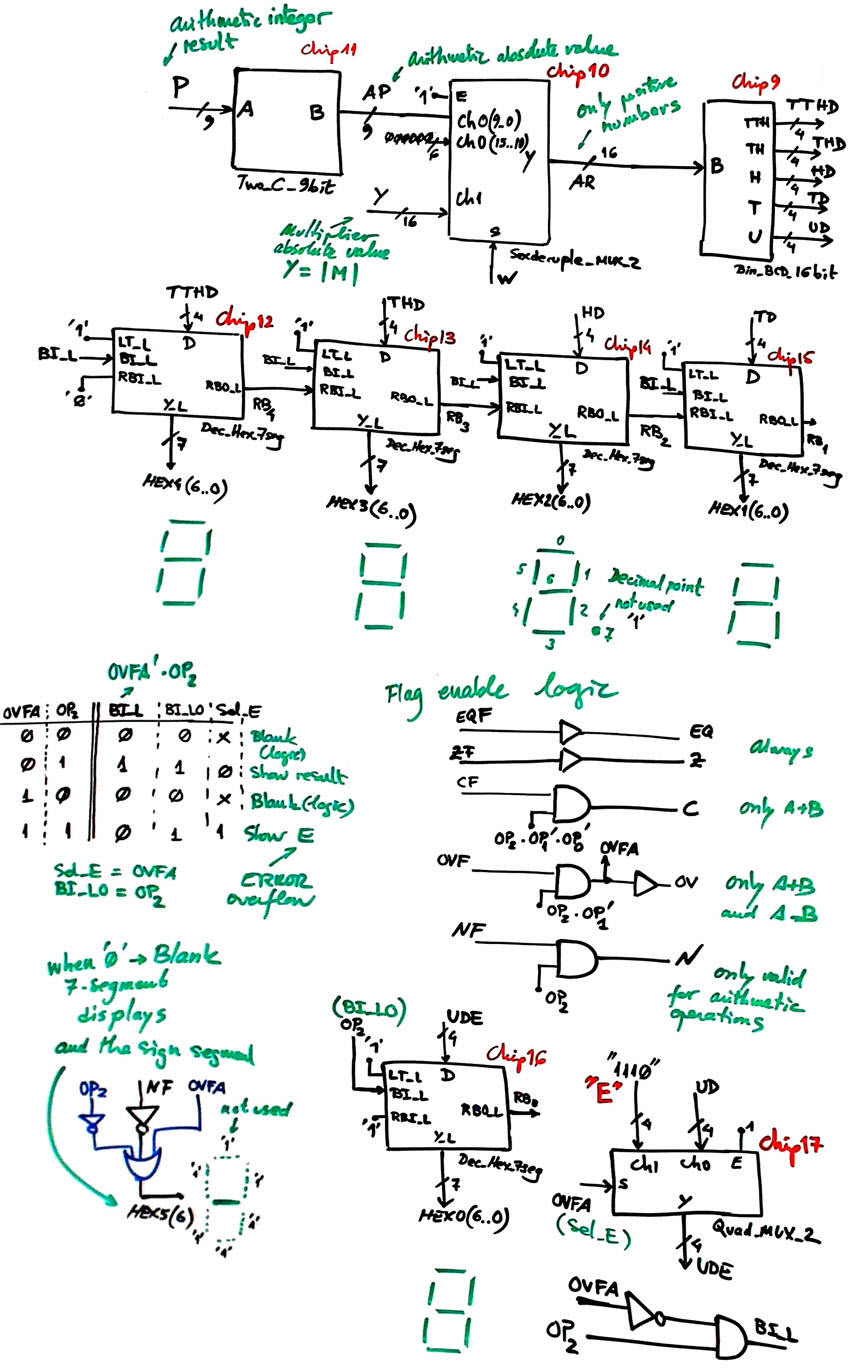 arithmetic integer
result
P
9
Chip11
A B
Two_C_9bit
arithmetic absolute value
AP
9
Chip10
'1'
E
Ch0(9..0)
000000
6
Ch0(15..10)
Y
Ch1
S
W
Sexdecuple_MUX_2
Y
16
Multiplier
absolute value
Y = |M|
only positive
numbers
16
AR
Chip9
B
TTH
TH
H
T
U
TTHD
4
THD
4
HD
4
TD
4
UD
4
Bin_BCD_16bit
TTHD
4
Chip12
'1'
BI_L
'0'
LT_L D
BI_L
RBI_L
RBO_L
Y_L
RB4
Dec_Hex_7seg
7
HEX4(6..0)
THD
4
Chip13
'1'
BI_L
LT_L D
BI_L
RBI_L
RBO_L
Y_L
RB3
Dec_Hex_7seg
7
HEX3(6..0)
HD
4
Chip14
'1'
BI_L
LT_L D
BI_L
RBI_L
RBO_L
Y_L
RB2
Dec_Hex_7seg
7
HEX2(6..0)
TD
4
Chip15
'1'
BI_L
LT_L D
BI_L
RBI_L
RBO_L
Y_L
RB1
Dec_Hex_7seg
7
HEX1(6..0)
0
5 6 1
4 2
3
7
Decimal point
not used
'1'
OVFA'·OP2
OVFA OP2 BI_L BI_L0 Sel_E
0 0 0 0 x Blank
(logic)
0 1 1 1 0 Show result
1 0 0 0 x Blank (logic)
1 1 0 1 1 Show E
Sel_E = OVFA
BI_L0 = OP2
ERROR
overflow
Flag enable logic
EQF EQ
ZF Z
always
CF C
OP2·OP1'·OP0'
only A+B
OVF OVFA OV
OP2·OP1'
only A+B
and A_B
NF N
OP2
only valid
for arithmetic
operations
when '0' → Blank
7-segment
displays
and the sign segment
OP2 NF OVFA
not used
'1'
'1'
'1'
'1'
'1'
'1'
HEX5(6)
(BI_L0)
OP2
'1'
UDE
4
Chip16
LT_L D
BI_L
RBI_L
'1'
RBO_L
RB0
Y_L
Dec_Hex_7seg
7
HEX0(6..0)
"1110"
"E"
4
UD
4
1
Chip17
Ch1 Ch0 E
S
Y
OVFA
(Sel_E)
Quad_MUX_2
4
UDE
OVFA
OP2
BI_L